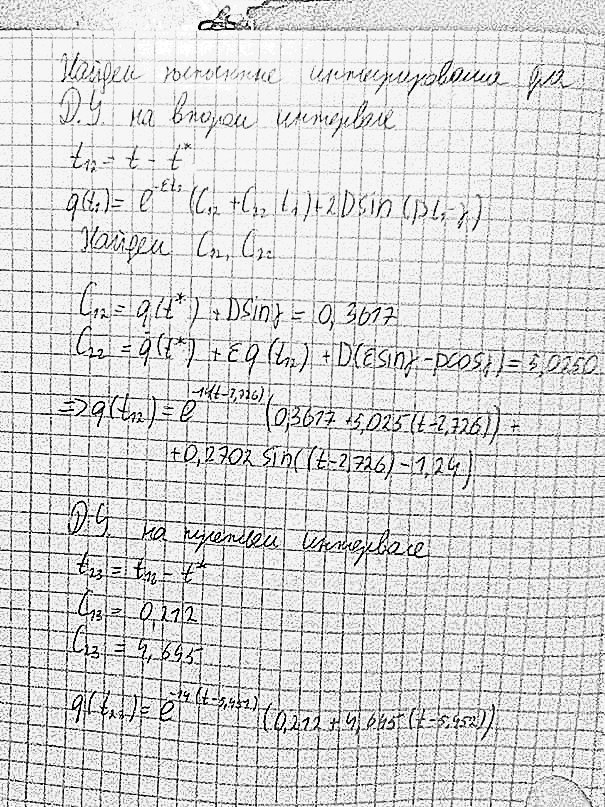 Найдем постоянные интегрирования для
Д.У. на втором интервале
t₁₂ = t - t*
q(t₁) = e^(-εt₁) (C₁₂ + C₂₂ t₁) + 2Dsin(pt₁-γ)
Найдем C₁₂, C₂₂
C₁₂ = q(t*) + Dsinγ = 0,3617
C₂₂ = q̇(t*) + εq(t₁₂) + D(εsinγ - pcosγ) = 5,0250
=> q(t₁₂) = e^(-14(t-2,726)) (0,3617 + 5,025(t-2,726)) +
+ 0,2702 sin((t-2,726) - 1,24)
Д.У. на третьем интервале
t₂₃ = t₁₂ - t*
C₁₃ = 0,212
C₂₃ = 4,645
q(t₂₃) = e^(-14(t-5,452)) (0,212 + 4,645(t-5,452))